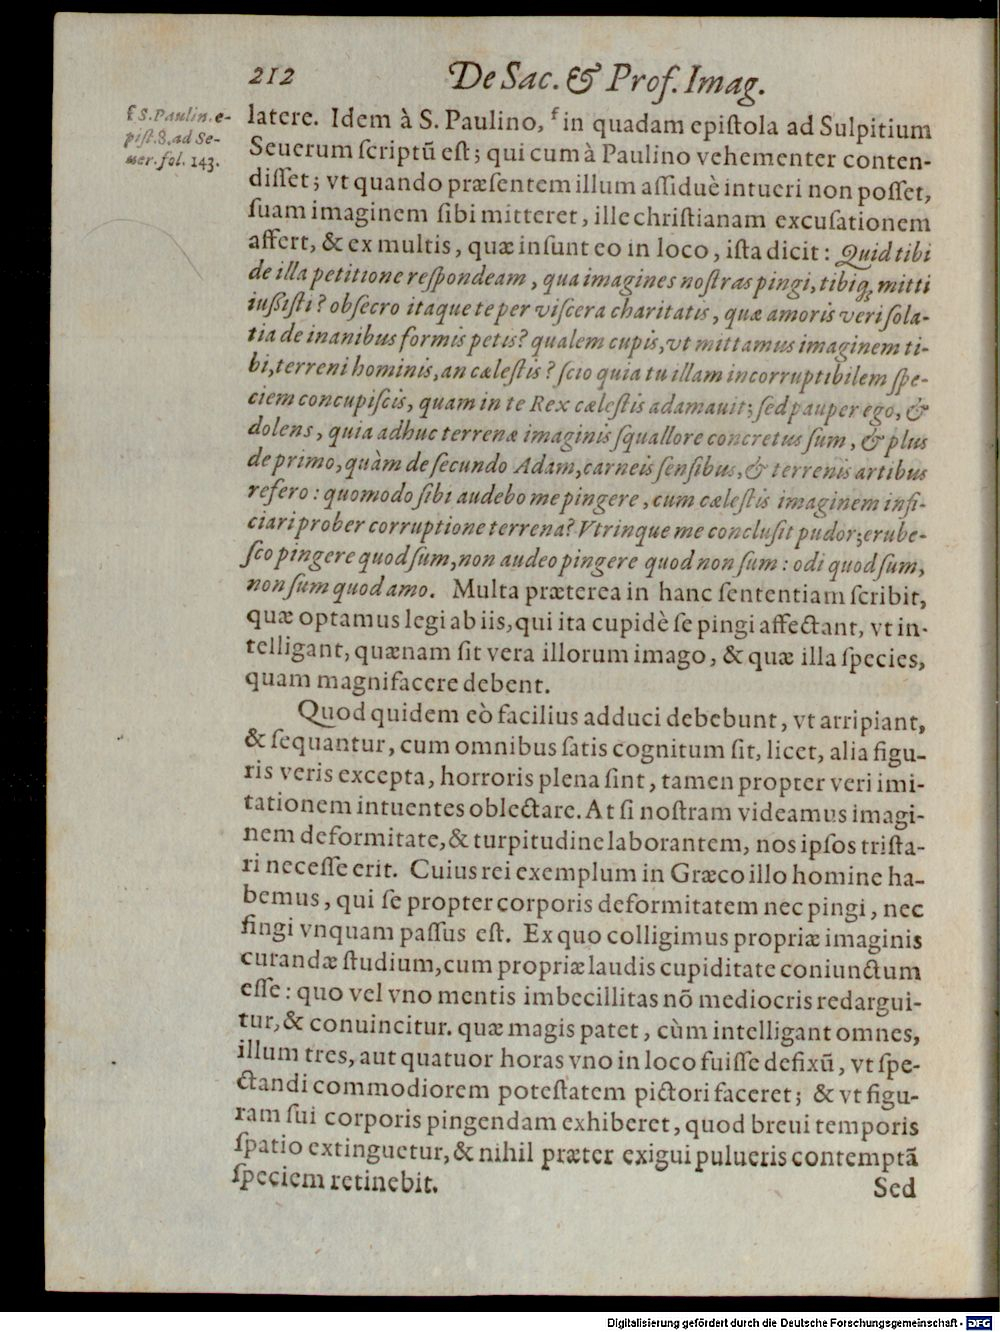 212 De Sac. & Prof. Imag.
f S. Paulin. e-
pist. 8. ad Se-
uer. fol. 143.
latere. Idem à S. Paulino, f in quadam epistola ad Sulpitium
Seuerum scriptũ est; qui cum à Paulino vehementer conten-
disset; vt quando præsentem illum assiduè intueri non posset,
suam imaginem sibi mitteret, ille christianam excusationem
affert, & ex multis, quæ insunt eo in loco, ista dicit: Quid tibi
de illa petitione respondeam, qua imagines nostras pingi, tibiq; mitti
iußisti? obsecro itaque te per viscera charitatis, quæ amoris veri sola-
tia de inanibus formis petis? qualem cupis, vt mittamus imaginem ti-
bi, terreni hominis, an cælestis? scio quia tu illam incorruptibilem spe-
ciem concupiscis, quam in te Rex cælestis adamauit; sed pauper ego, &
dolens, quia adhuc terrenæ imaginis squallore concretus sum, & plus
de primo, quàm de secundo Adam, carneis sensibus, & terrenis artibus
refero: quomodo sibi audebo me pingere, cum cælestis imaginem infi-
ciari prober corruptione terrena? Vtrinque me conclusit pudor; erube-
sco pingere quod sum, non audeo pingere quod non sum: odi quod sum,
non sum quod amo. Multa præterea in hanc sententiam scribit,
quæ optamus legi ab iis, qui ita cupidè se pingi affectant, vt in-
telligant, quænam sit vera illorum imago, & quæ illa species,
quam magnifacere debent.
Quod quidem eò facilius adduci debebunt, vt arripiant,
& sequantur, cum omnibus satis cognitum sit, licet, alia figu-
ris veris excepta, horroris plena sint, tamen propter veri imi-
tationem intuentes oblectare. At si nostram videamus imagi-
nem deformitate, & turpitudine laborantem, nos ipsos trista-
ri necesse erit. Cuius rei exemplum in Græco illo homine ha-
bemus, qui se propter corporis deformitatem nec pingi, nec
fingi vnquam passus est. Ex quo colligimus propriæ imaginis
curandæ studium, cum propriæ laudis cupiditate coniunctum
esse: quo vel vno mentis imbecillitas nõ mediocris redargui-
tur, & conuincitur. quæ magis patet, cùm intelligant omnes,
illum tres, aut quatuor horas vno in loco fuisse defixũ, vt spe-
ctandi commodiorem potestatem pictori faceret; & vt figu-
ram sui corporis pingendam exhiberet, quod breui temporis
spatio extinguetur, & nihil præter exigui pulueris contemptã
speciem retinebit.
Sed
Digitalisierung gefördert durch die Deutsche Forschungsgemeinschaft - DFG